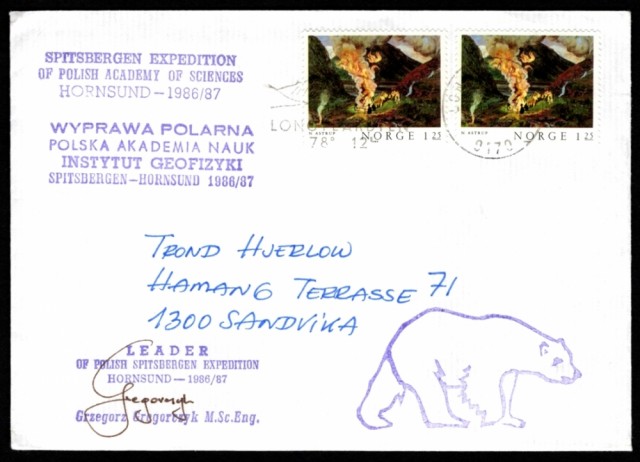 SPITSBERGEN EXPEDITION
OF POLISH ACADEMY OF SCIENCES
HORNSUND — 1986/87
WYPRAWA POLARNA
POLSKA AKADEMIA NAUK
INSTYTUT GEOFIZYKI
SPITSBERGEN—HORNSUND 1986/87
N. ASTRUP NORGE 125
N. ASTRUP NORGE 125
78° 12
9170
TROND HJERLOW
HAMANG TERRASSE 71
1300 SANDVIKA
LEADER
OF POLISH SPITSBERGEN EXPEDITION
HORNSUND — 1986/87
Gregorczyk
Grzegorz Gregorczyk M.Sc.Eng.